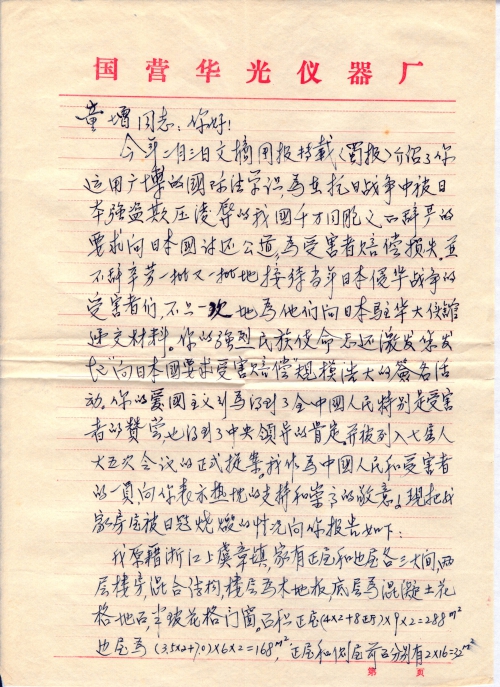 国营华光仪器厂
童增同志:你好!
今年二月三日文摘周报转载《蜀报》介绍了你
运用广博的国际法学识,为在抗日战争中被日
本强盗欺压凌辱的我国千万同胞义不辞严的
要求向日本国讨还公道,为受害者赔偿损失。并
不辞辛劳一批又一批地接待当年日本侵华战争的
受害者们,不止一次地为他们向日本驻华大使館
递交材料。你的强烈民族使命感还激发你发
起“向日本國要求受害赔偿”规模浩大的簽名活
动。你的爱國主义列為得到了全中國人民特别是受害
者的赞赏也得到了中央领导的肯定并被列入七届人
大五次会议的正式提案。我作為中國人民和受害者
的一員,向你表示热忱的支持和崇高的敬意!现把我
家房屋被日寇烧燬的情况向你报告如下:
我原籍浙江上虞章镇,家有正屋和也屋各三大间,两
层楼房混合结构,楼层為木地板,底层為混凝土花
格地面,半玻花格门窗。面积正屋(4×2+8)×9×2=288m²
也屋為(3.5×2+7.0)×6×2=168m²,正屋和侧屋前面分别有2×16=32m²
第 页